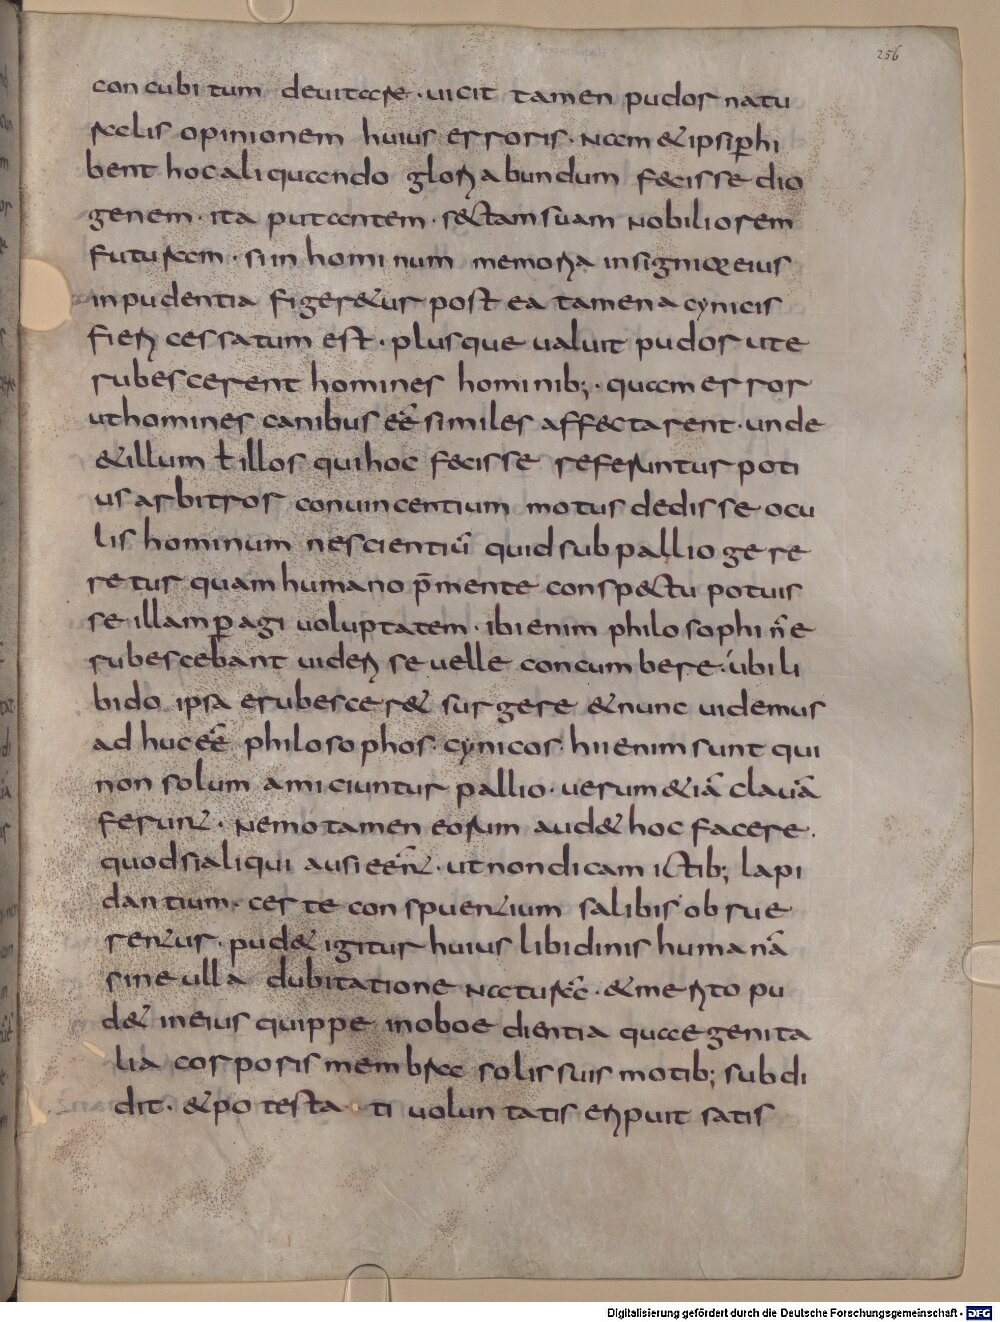 256
concubitum deuitare · uicit tamen pudor natu
ralis opinionem huius erroris · Nam & ipsi ꝑhi
bent hoc aliquando gloriabundum fecisse dio
genem · ita putantem · sectam suam Nobiliorem
futuram · si in hominum memoria insignior eius
inpudentia figeretur postea tamen a cynicis
fieri cessatum est · plusque ualuit pudor ut e
rubescerent homines hominib; · quam error
ut homines canibus eē similes affectarent · unde
& illum ł illos qui hoc fecisse referuntur poti
us arbitror conuincentium motus dedisse ocu
lis hominum nescientiū quid sub pallio gere
retur quam humano p̄mente conspectu potuis
se illam ꝑagi uoluptatem · ibi enim philosophi ñ e
rubescebant uideri se uelle concumbere · ubi li
bido ipsa erubescer& surgere & nunc uidemus
adhuc eē philosophos cynicos · hi enim sunt qui
non solum amiciuntur pallio · uerum & iā clauā
ferunt · Nemo tamen eorum aud& hoc facere ·
quod si aliqui ausi eēnt · ut non dicam ictib; lapi
dantium · certe conspuentium salibis obrue
rentur · pud& igitur huius libidinis humanā
sine ulla dubitatione naturā · & merito pu
d& in eius quippe inoboedientia quae genita
lia corporis membra solis suis motib; subdi
dit · & potesta ti uoluntatis eripuit satis
Digitalisierung gefördert durch die Deutsche Forschungsgemeinschaft - DFG